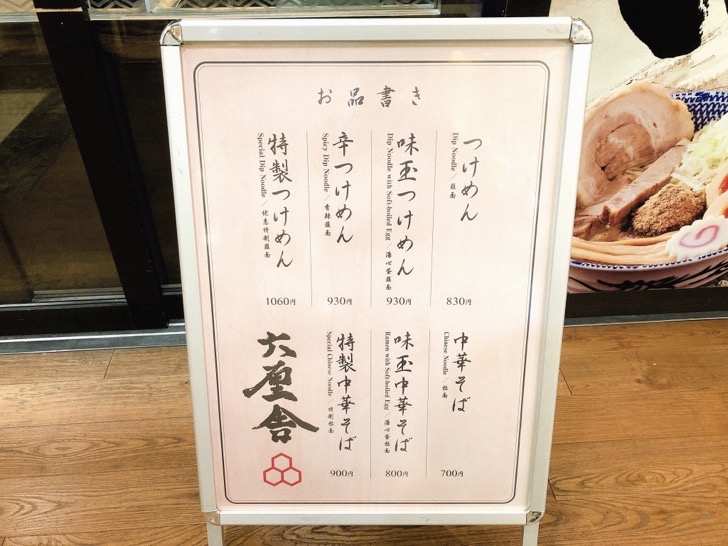 お品書き
つけめん
Dip Noodle / 蘸面
830円
味玉つけめん
Dip Noodle with Soft-boiled Egg / 溏心蛋蘸面
930円
辛つけめん
Spicy Dip Noodle / 香辣蘸面
930円
特製つけめん
Special Dip Noodle / 优惠特制蘸面
1060円
中華そば
Chinese Noodle / 拉面
700円
味玉中華そば
Ramen with Soft-boiled Egg / 溏心蛋拉面
800円
特製中華そば
Special Chinese Noodle / 特制拉面
900円
六厘舎